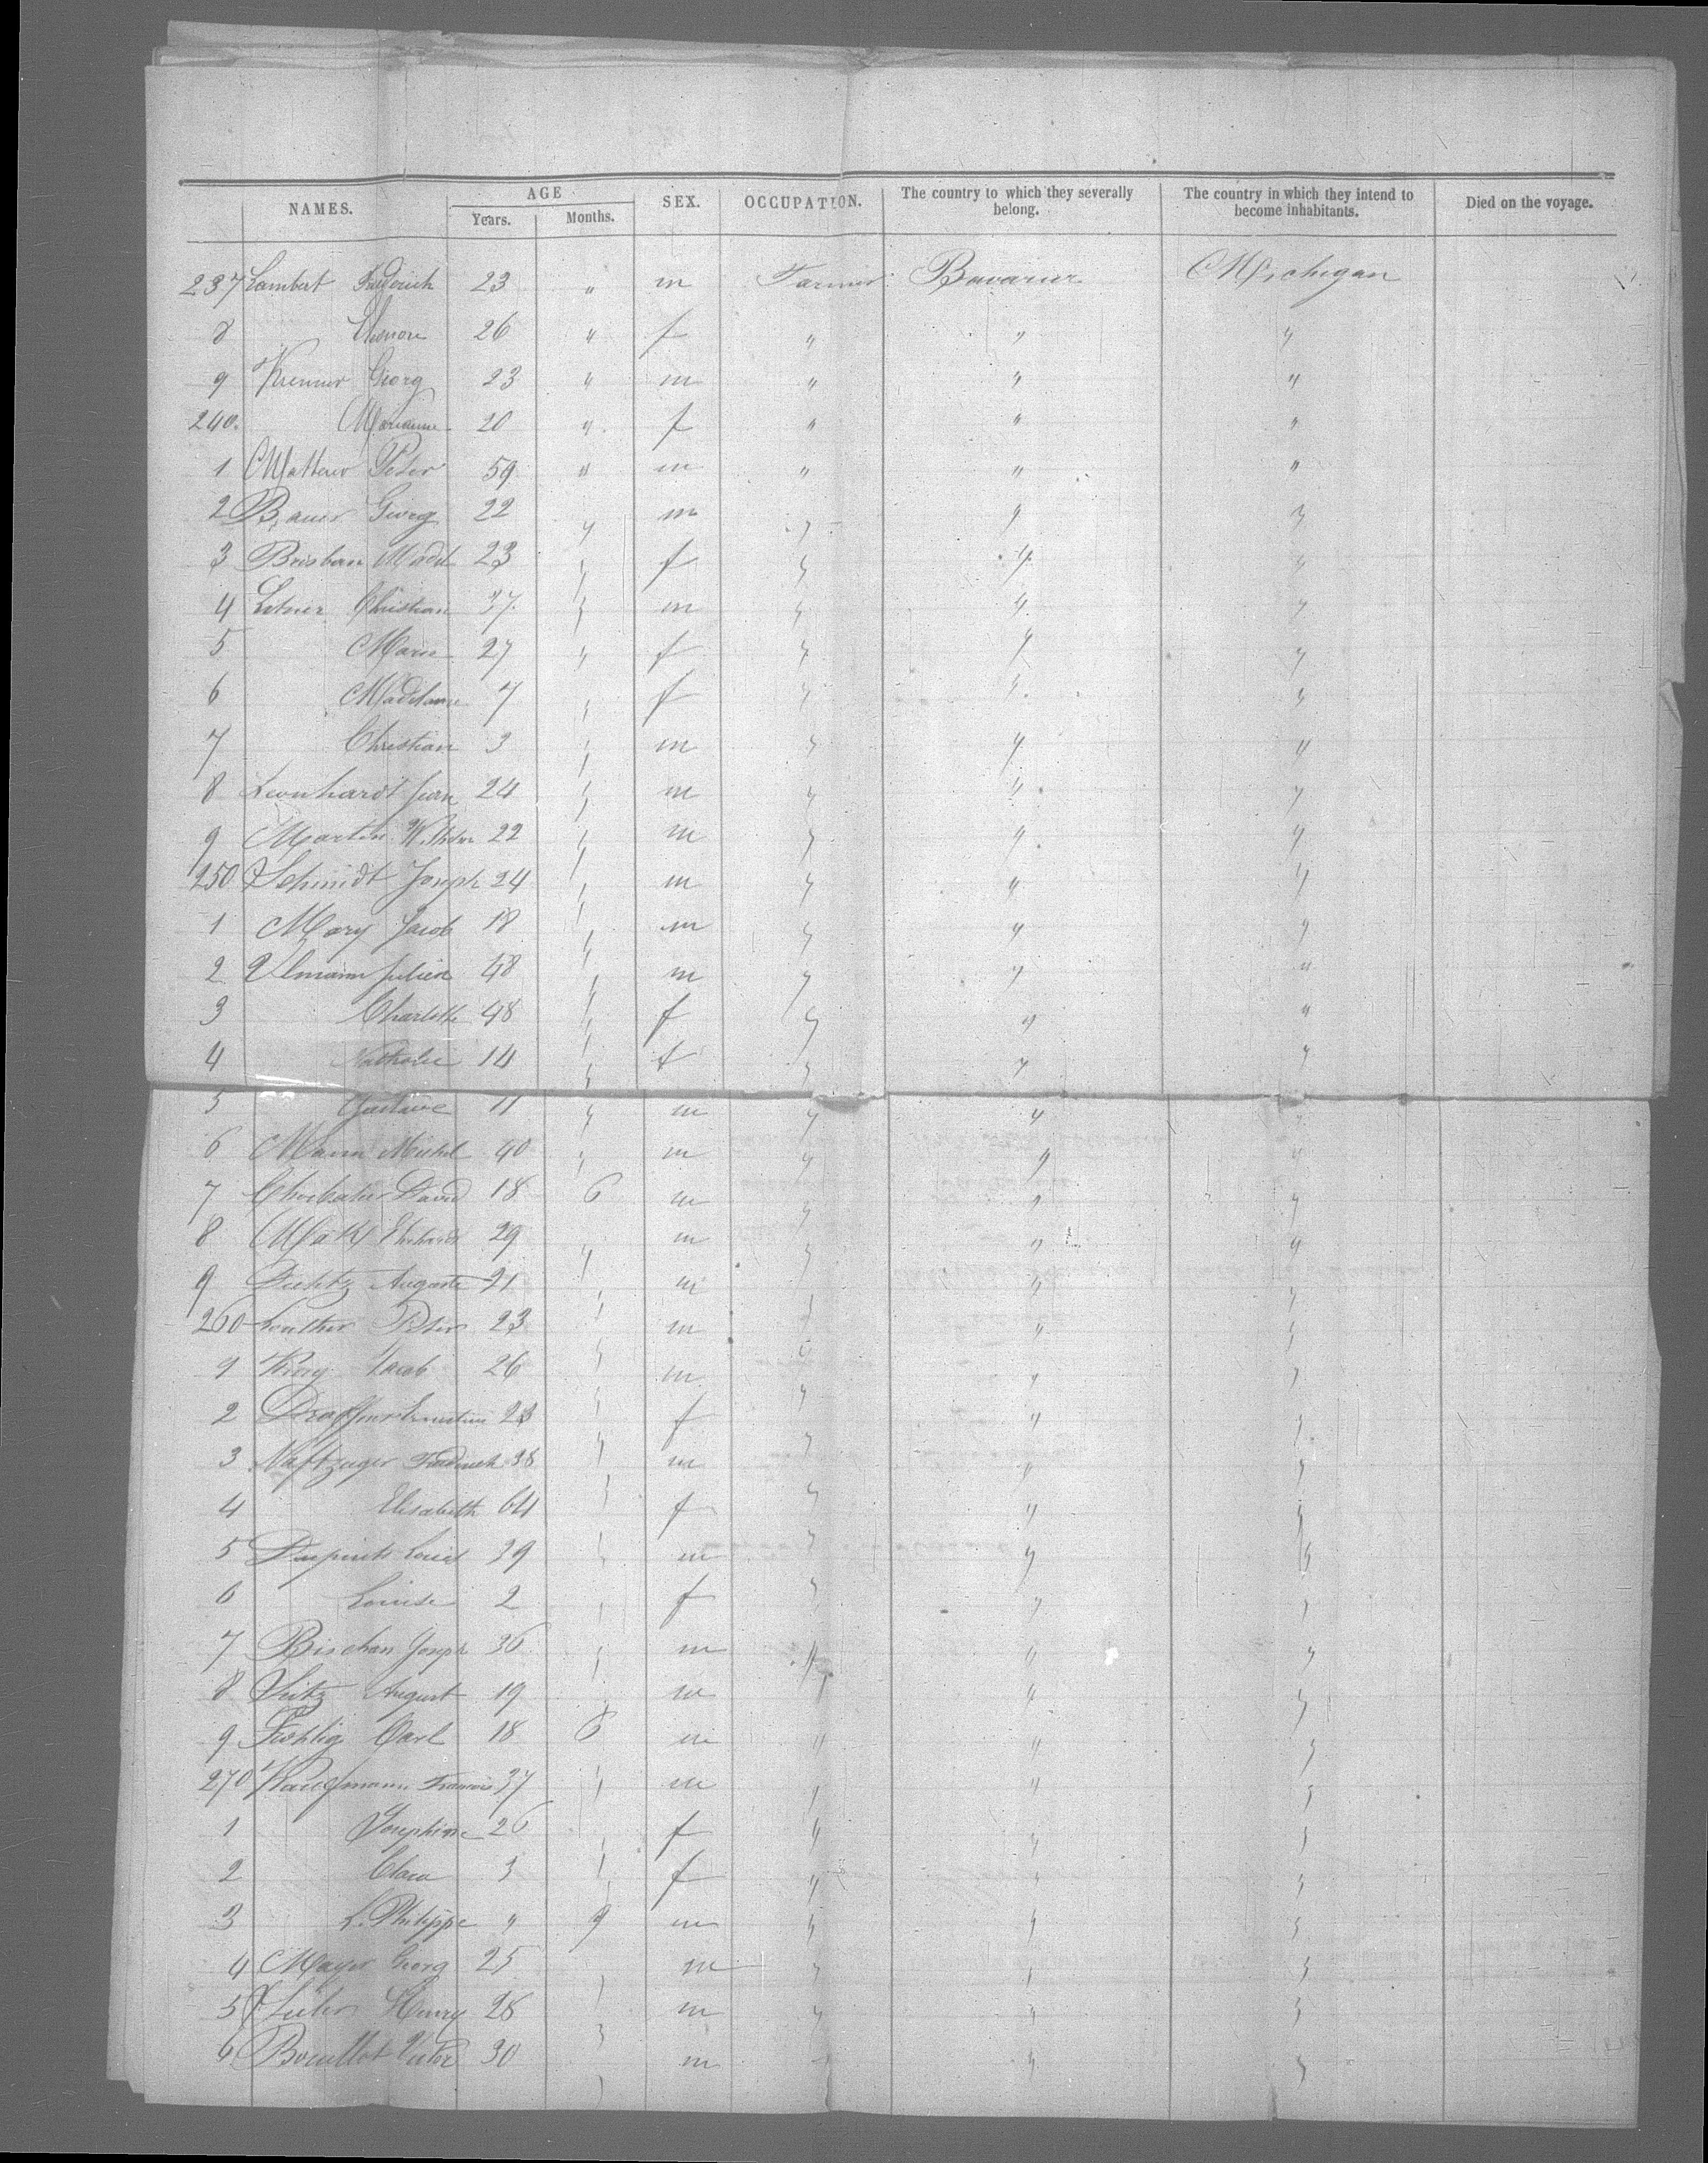 NAMES. AGE SEX. OCCUPATION. The country to which they severally belong. The country in which they intend to become inhabitants. Died on the voyage.
Years. Months.
237 Lambert Friederich 23 " m Farmer Bavarier Michigan
8 Eleonore 26 " f " " "
9 Kremer Georg 23 " m " " "
240. Marianne 20 " f " " "
1 Matterer Peter 59 " m " " "
2 Bauer Georg 22 " m " " "
3 Brisban Madel 23 " f " " "
4 Christian 37 " m " " "
5 Marie 27 " f " " "
6 Madelaine 7 " f " " "
7 Christian 3 " m " " "
8 Leonhardt Jean 24 " m " " "
9 Martin 22 " m " " "
250 Schmidt Joseph 24 " m " " "
1 Mary Jacob 18 " m " " "
2 Ulmann Julien 48 " m " " "
3 Charlotte 48 " f " " "
4 Nathalie 14 " f " " "
5 Gustave 11 " m " " "
6 Mann Michel 40 " m " " "
7 David 18 6 m " " "
8 29 " m " " "
9 Auguste 21 " m " " "
260 Peter 23 " m " " "
1 Jacob 26 " m " " "
2 Ernestine 23 " f " " "
3 Naftzuger Friederich 38 " m " " "
4 Elisabeth 64 " f " " "
5 Louis 39 " m " " "
6 Louise 2 " f " " "
7 Bischan Joseph 36 " m " " "
8 Seitz August 19 " m " " "
9 Carl 18 6 m " " "
270 Kaufmann Francois 37 " m " " "
1 Josephine 26 " f " " "
2 Clara 3 " f " " "
3 L. Philippe " 9 m " " "
4 Mayer Georg 25 " m " " "
5 Henry 28 " m " " "
6 Bouillot Victor 30 " m " " "